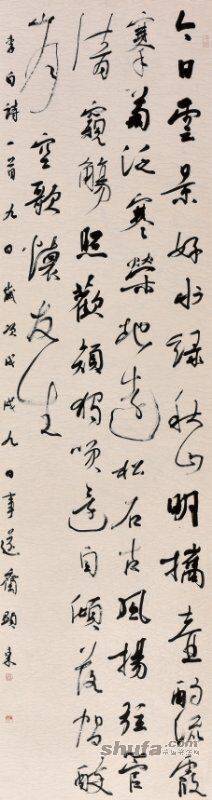 今日雲景好水綠秋山明攜壺酌流霞
搴菊泛寒榮地遠松石古風揚弦管
清窺觴照歡顏獨笑還自傾落帽醉
山月空歌懷友生
李白詩一首九日歲次戊戌九日
shufa.com